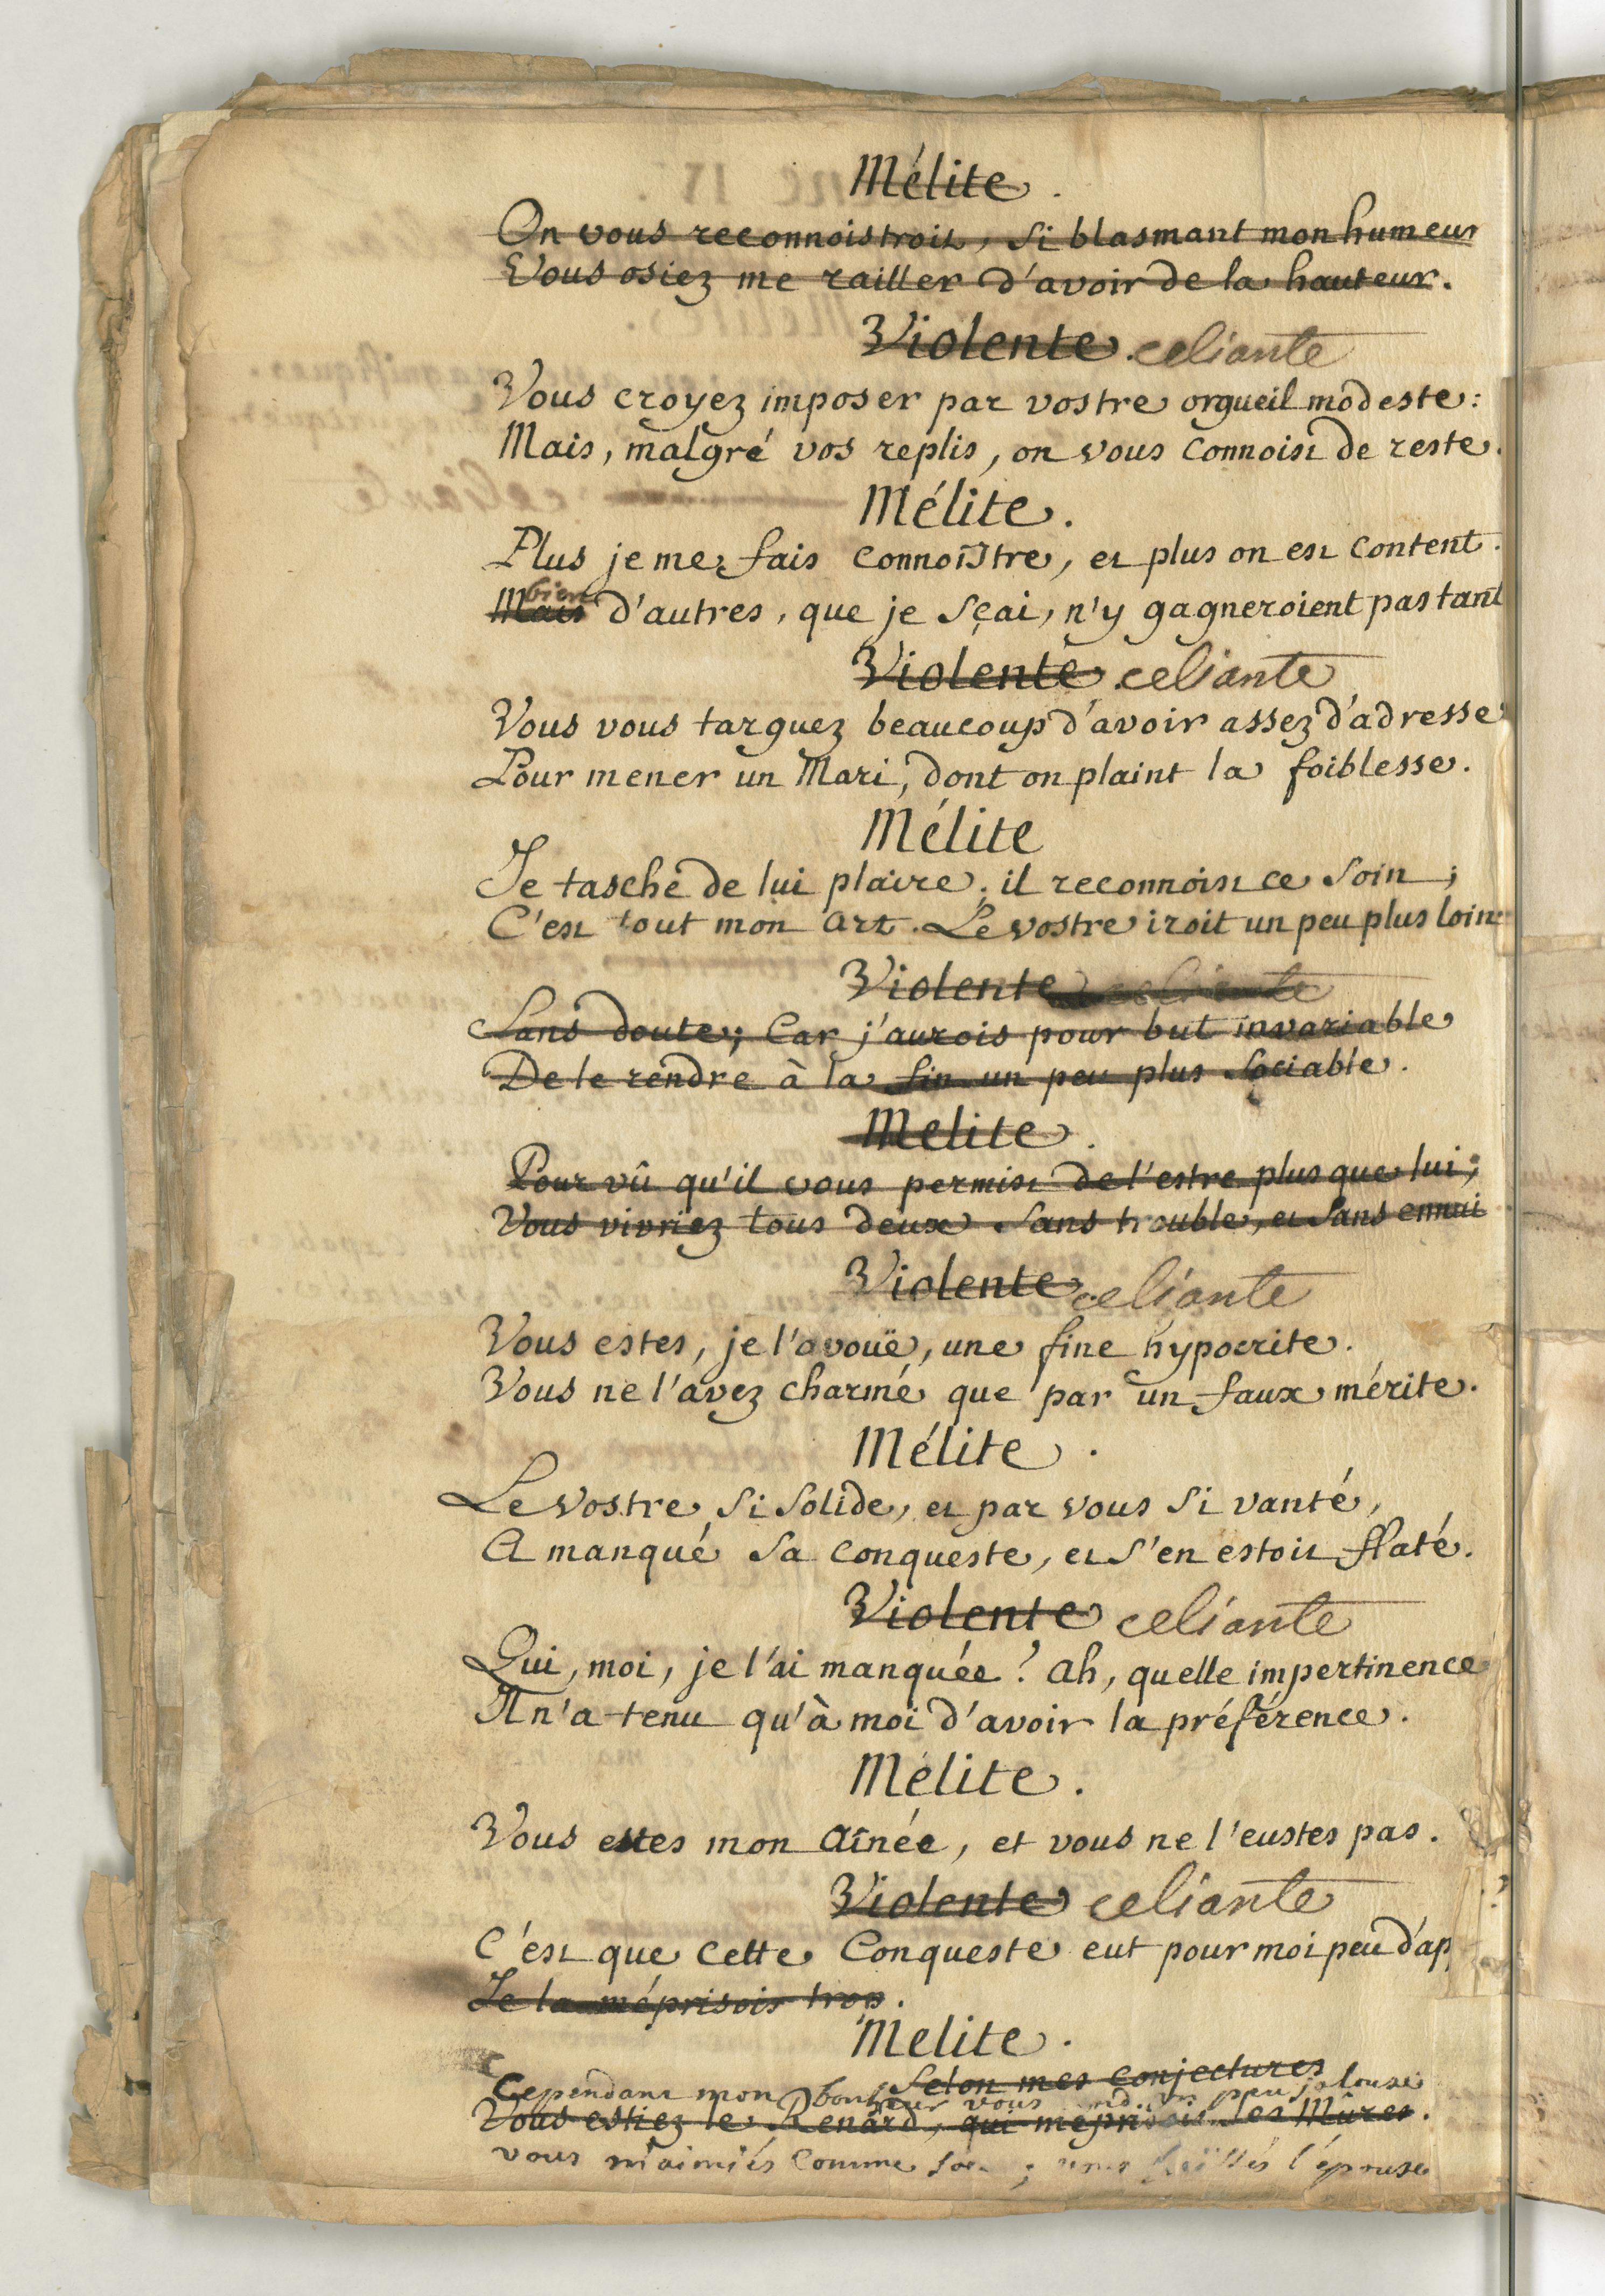 Mélite.
On vous reconnoistroit, si blasmant mon humeur
Vous osiez me railler d'avoir de la hauteur.
Violente. celiante
Vous croyez imposer par vostre orgueil modeste:
Mais, malgré vos replis, on vous connoist de reste.
Mélite.
Plus je me fais connoistre, et plus on est content.
bien
Mais d'autres, que je sçai, n'y gagneroient pas tant
Violente. celiante
Vous vous targuez beaucoup d'avoir assez d'adresse
Pour mener un Mari, dont on plaint la foiblesse.
Mélite
Je tasche de lui plaire; il reconnoist ce soin;
C'est tout mon art. Le vostre iroit un peu plus loin
Violente celiante
Sans doute; Car j'aurois pour but invariable
De le rendre à la fin un peu plus sociable.
Melite.
Pour vû qu'il vous permist de l'estre plus que lui;
Vous vivriez tous deux sans trouble, et sans ennui
Violente. celiante
Vous estes, je l'avouë, une fine hypocrite.
Vous ne l'avez charmé que par un faux mérite.
Mélite.
Le vostre si solide, et par vous si vanté,
A manqué sa conqueste, et s'en estoit flaté.
Violente celiante
Qui, moi, je l'ai manquée? ah, quelle impertinence
Il n'a tenu qu'à moi d'avoir la préférence.
Mélite.
Vous estes mon aînée, et vous ne l'eustes pas.
Violente celiante
C'est que cette Conqueste eut pour moi peu d'ap
Je la méprisois trop.
Melite.
Selon mes conjectures
Cependant mon bonheur vous un peu jalouse
Vous estiez le Renard, qui méprisoit les Mûres.
vous m'aimiés comme vous haïssés l'épouse